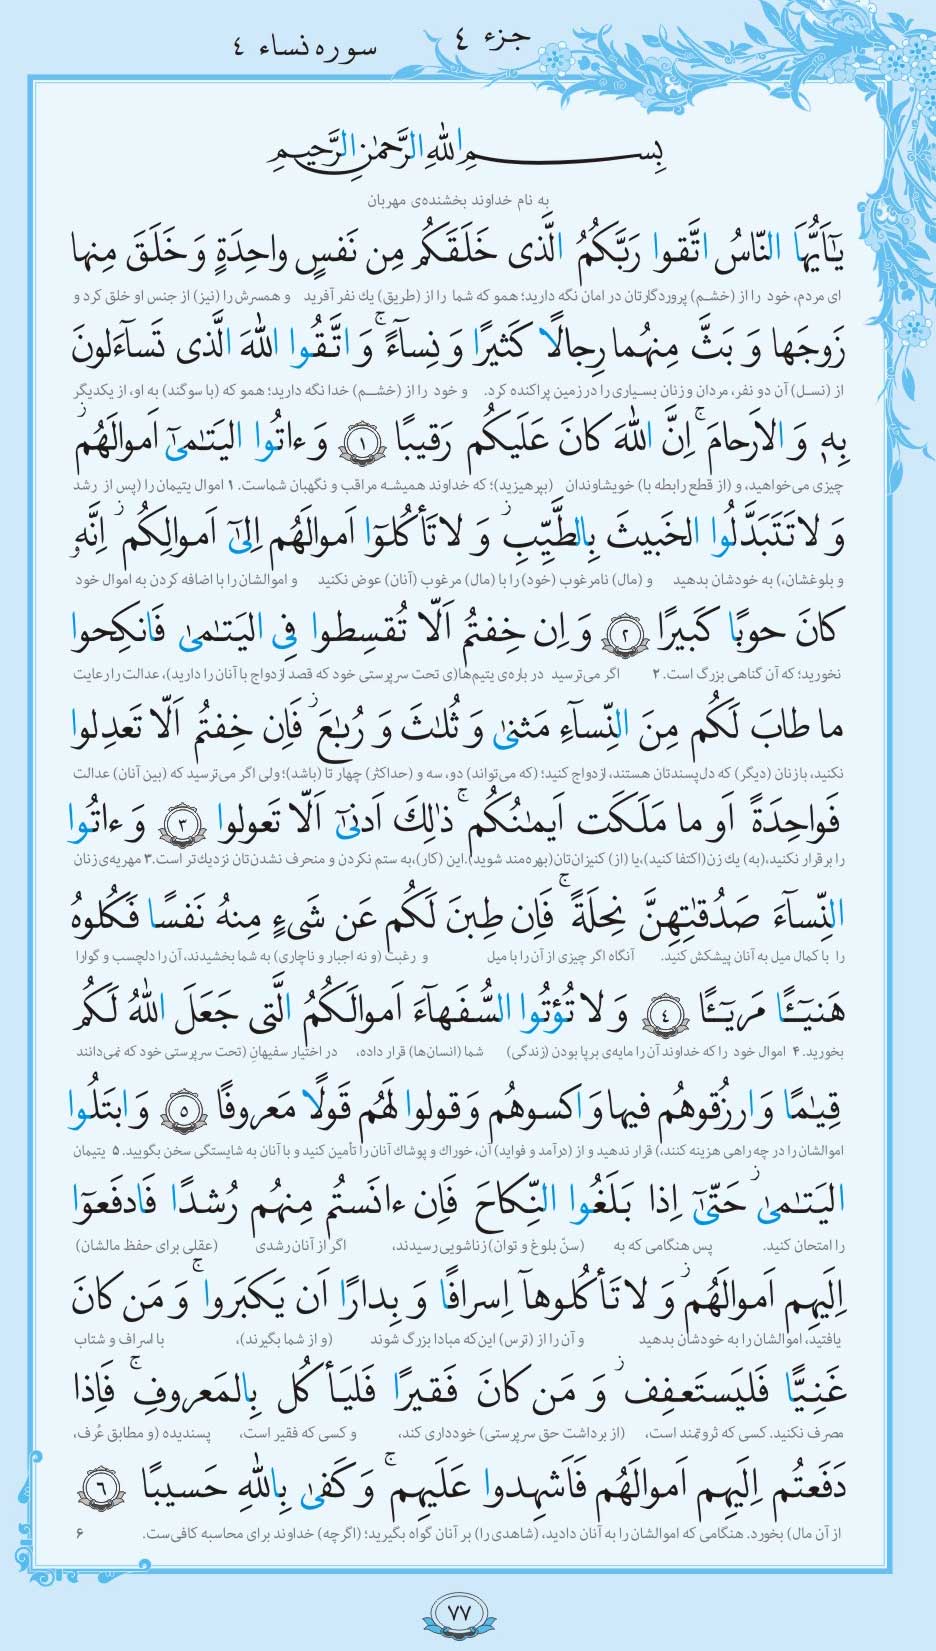 جزء ٤
سوره نساء ٤
بِسمِ اللّٰهِ الرَّحمٰنِ الرَّحیمِ
به نام خداوند بخشنده‌ی مهربان
یٰٓاَیُّهَا النّاسُ اتَّقوا رَبَّکُمُ الَّذی خَلَقَکُم مِن نَفسٍ واحِدَةٍ وَ خَلَقَ مِنها
ای مردم، خود را از (خشم) پروردگارتان در امان نگه دارید؛ همو که شما را از (طریق) یك نفر آفرید و همسرش را (نیز) از جنس او خلق کرد و
زَوجَها وَ بَثَّ مِنهُما رِجالًا کَثیرًا وَ نِسآءً ۚ وَ اتَّقُوا اللّٰهَ الَّذی تَسآءَلونَ
از (نسل) آن دو نفر، مردان و زنان بسیاری را در زمین پراکنده کرد. و خود را از (خشم) خدا نگه دارید؛ همو که (با سوگند) به او، از یکدیگر
بِهٖ وَ الاَرحامَ ۚ اِنَّ اللّٰهَ کانَ عَلَیکُم رَقیبًا ١ وَ ءاتُوا الیَتـٰمیٰٓ اَموالَهُم ۖ
چیزی می‌خواهید، و (از قطع رابطه با) خویشاوندان (بپرهیزید)؛ که خداوند همیشه مراقب و نگهبان شماست. ۱ اموال یتیمان را (پس از رشد
وَ لا تَتَبَدَّلُوا الخَبیثَ بِالطَّیِّبِ ۖ وَ لا تَأکُلوٓا اَموالَهُم اِلیٰٓ اَموالِکُم ۚ اِنَّهٗ
و بلوغشان،) به خودشان بدهید و (مال) نامرغوب (خود) را با (مال) مرغوب (آنان) عوض نکنید و اموالشان را با اضافه کردن به اموال خود
کانَ حوبًا کَبیرًا ٢ وَ اِن خِفتُم اَلّا تُقسِطوا فِی الیَتـٰمیٰ فَانکِحوا
نخورید؛ که آن گناهی بزرگ است. ۲ اگر می‌ترسید در باره‌ی یتیم‌ها(ی تحت سرپرستی خود که قصد ازدواج با آنان را دارید)، عدالت را رعایت
ما طابَ لَکُم مِنَ النِّسآءِ مَثنیٰ وَ ثُلـٰثَ وَ رُبـٰعَ ۖ فَاِن خِفتُم اَلّا تَعدِلوا
نکنید، با زنان (دیگر) که دل‌پسندتان هستند، ازدواج کنید؛ (که می‌تواند) دو، سه و (حداکثر) چهار تا (باشد)؛ ولی اگر می‌ترسید که (بین آنان) عدالت
فَواحِدَةً اَو ما مَلَکَت اَیمـٰنُکُم ۚ ذٰلِكَ اَدنیٰٓ اَلّا تَعولوا ٣ وَ ءاتُوا
را برقرار نکنید، (به) یك زن (اکتفا کنید)، یا (از) کنیزان‌تان (بهره‌مند شوید). این (کار)، به ستم نکردن و منحرف نشدن‌تان نزدیك‌تر است. ۳ مهریه‌ی زنان
النِّسآءَ صَدُقـٰتِهِنَّ نِحلَةً ۚ فَاِن طِبنَ لَکُم عَن شَیءٍ مِنهُ نَفسًا فَکُلوهُ
را با کمال میل به آنان پیشکش کنید. آنگاه اگر چیزی از آن را با میل و رغبت (و نه اجبار و ناچاری) به شما بخشیدند، آن را دلچسب و گوارا
هَنیٓـًٔا مَریٓـًٔا ٤ وَ لا تُؤتُوا السُّفَهآءَ اَموالَکُمُ الَّتی جَعَلَ اللّٰهُ لَکُم
بخورید. ۴ اموال خود را که خداوند آن را مایه‌ی برپا بودن (زندگی) شما (انسان‌ها) قرار داده، در اختیار سفیهان (تحت سرپرستی خود که نمی‌دانند
قِیـٰمًا وَ ارزُقوهُم فیها وَ اکسوهُم وَ قولوا لَهُم قَولًا مَعروفًا ٥ وَ ابتَلُوا
اموالشان را در چه راهی هزینه کنند،) قرار ندهید و از (درآمد و فواید) آن، خوراك و پوشاك آنان را تأمین کنید و با آنان به شایستگی سخن بگویید. ۵ یتیمان
الیَتـٰمیٰ حَتّیٰٓ اِذا بَلَغُوا النِّکاحَ فَاِن ءانَستُم مِنهُم رُشدًا فَادفَعوٓا
را امتحان کنید. پس هنگامی که به (سنّ بلوغ و توان) زناشویی رسیدند، اگر از آنان رشدی (عقلی برای حفظ مالشان)
اِلَیهِم اَموالَهُم ۖ وَ لا تَأکُلوهآ اِسرافًا وَ بِدارًا اَن یَکبَروا ۚ وَ مَن کانَ
یافتید، اموالشان را به خودشان بدهید و آن را از (ترس) این‌که مبادا بزرگ شوند (و از شما بگیرند)، با اسراف و شتاب
غَنِیًّا فَلیَستَعفِف ۖ وَ مَن کانَ فَقیرًا فَلیَأکُل بِالمَعروفِ ۚ فَاِذا
مصرف نکنید. کسی که ثروتمند است، (از برداشت حق سرپرستی) خودداری کند، و کسی که فقیر است، پسندیده (و مطابق عُرف،
دَفَعتُم اِلَیهِم اَموالَهُم فَاَشهِدوا عَلَیهِم ۚ وَ کَفیٰ بِاللّٰهِ حَسیبًا ٦
از آن مال) بخورد. هنگامی که اموالشان را به آنان دادید، (شاهدی را) بر آنان گواه بگیرید؛ (اگرچه) خداوند برای محاسبه کافی‌ست. ۶
٧٧